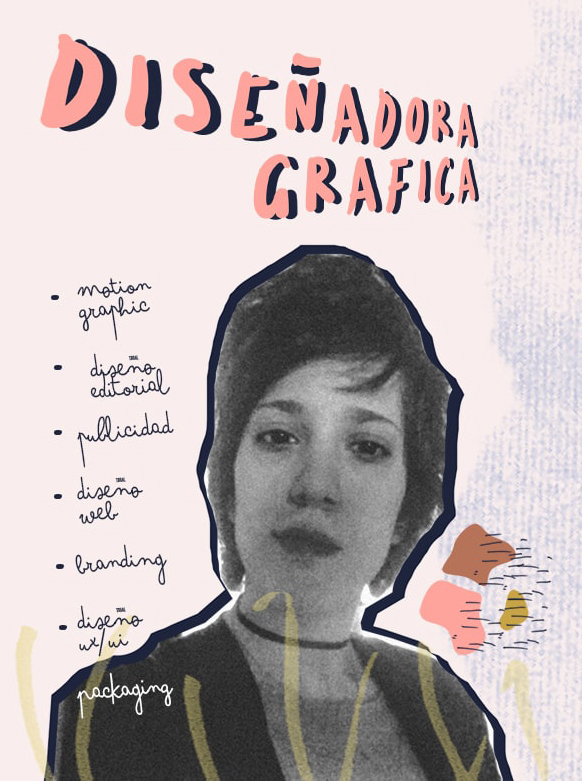 DISEÑADORA
GRAFICA
- motion
graphic
- diseno
editorial
- publicidad
- diseno
web
- branding
- diseno
ux/ui
packaging